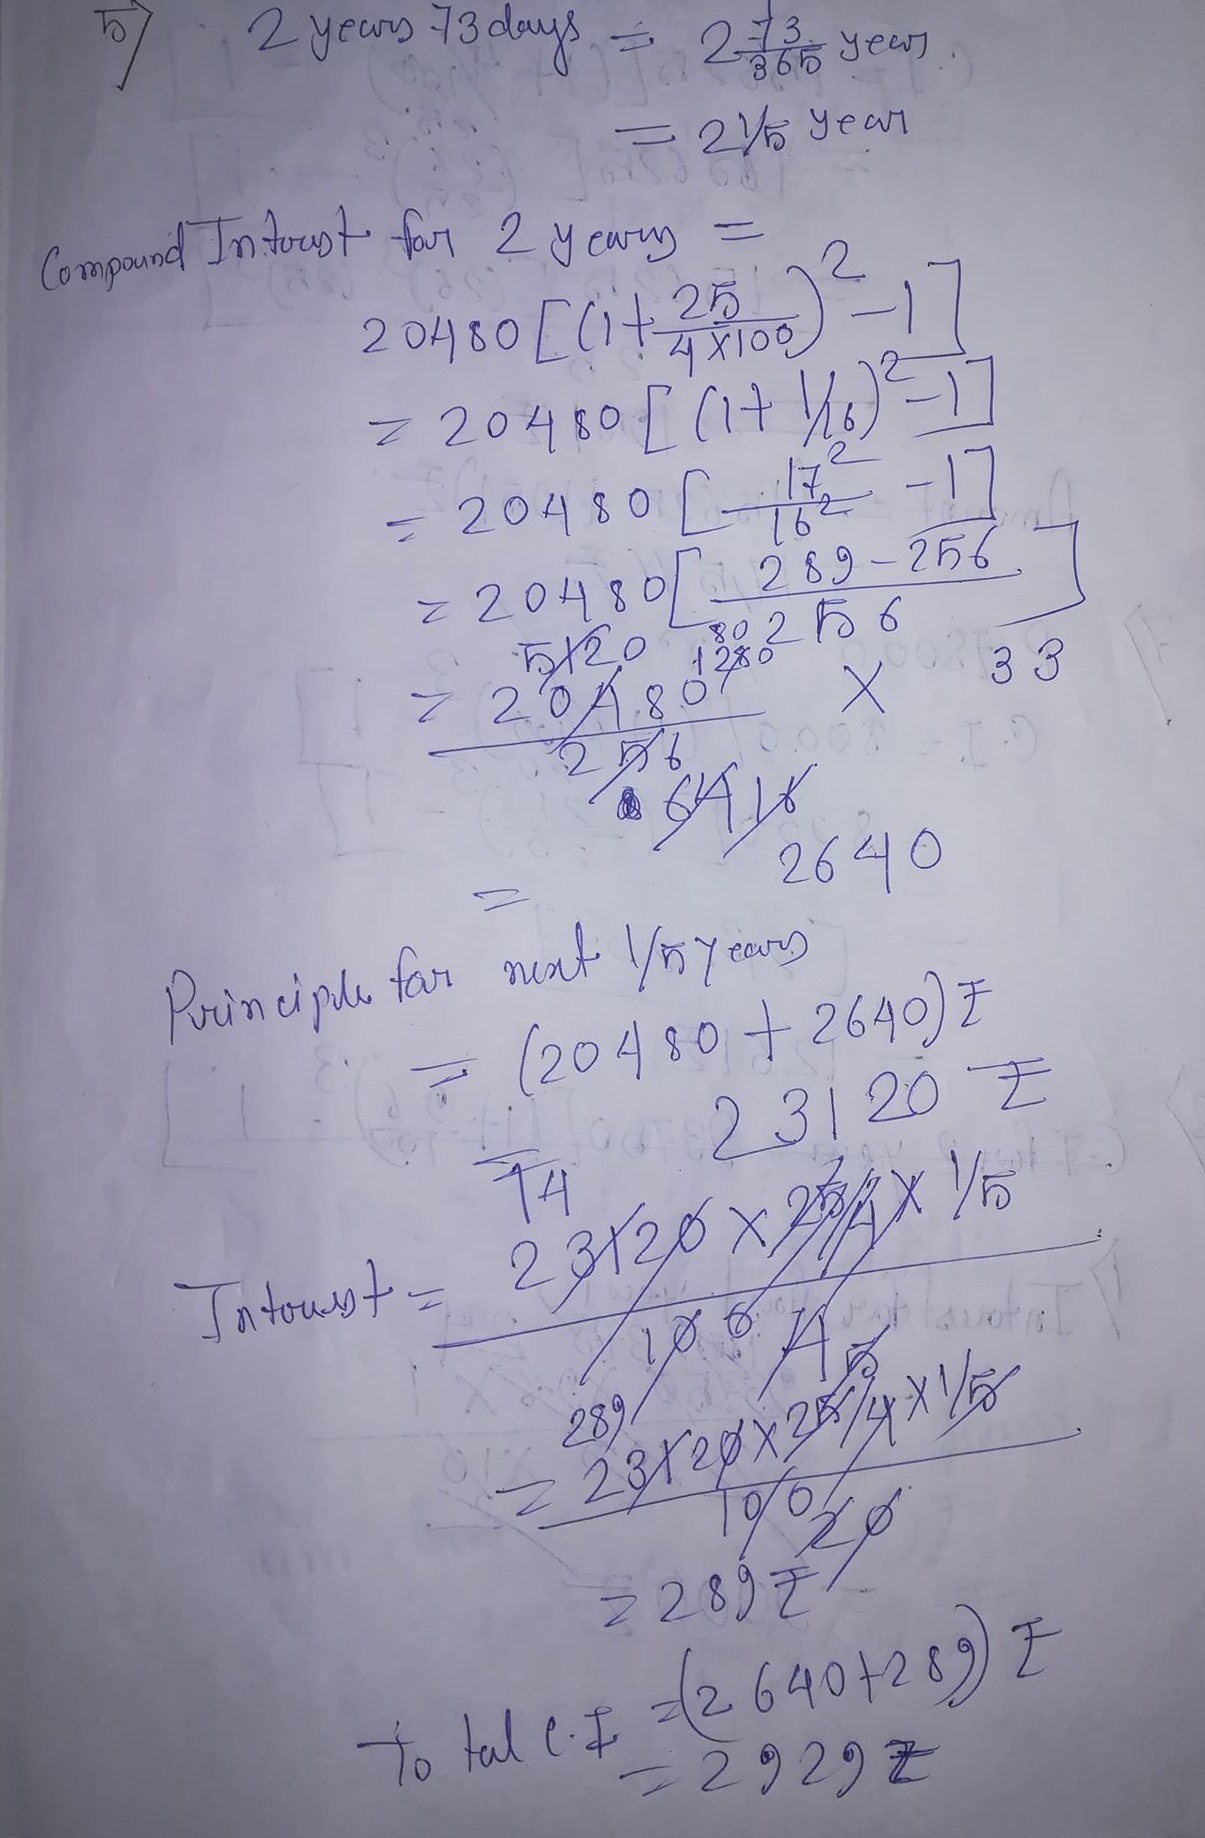 5) 2 years 73 days = 2 73/365 years.
= 2 1/5 year
Compound Interest for 2 years =
20480 [(1 + 25/4×100)² - 1]
= 20480 [(1 + 1/16)² - 1]
= 20480 [17²/16² - 1]
= 20480 [289 - 256 / 256]
5120 1280 80
= 20480/256 × 33
64 16
= 2640
Principle for next 1/5 years
= (20480 + 2640) ₹
= 23120 ₹
Interest = 23120 × 25/4 × 1/5 / 100
289
= 23120 × 25/4 × 1/5 / 100
20
= 289 ₹
Total C.I = (2640 + 289) ₹
= 2929 ₹